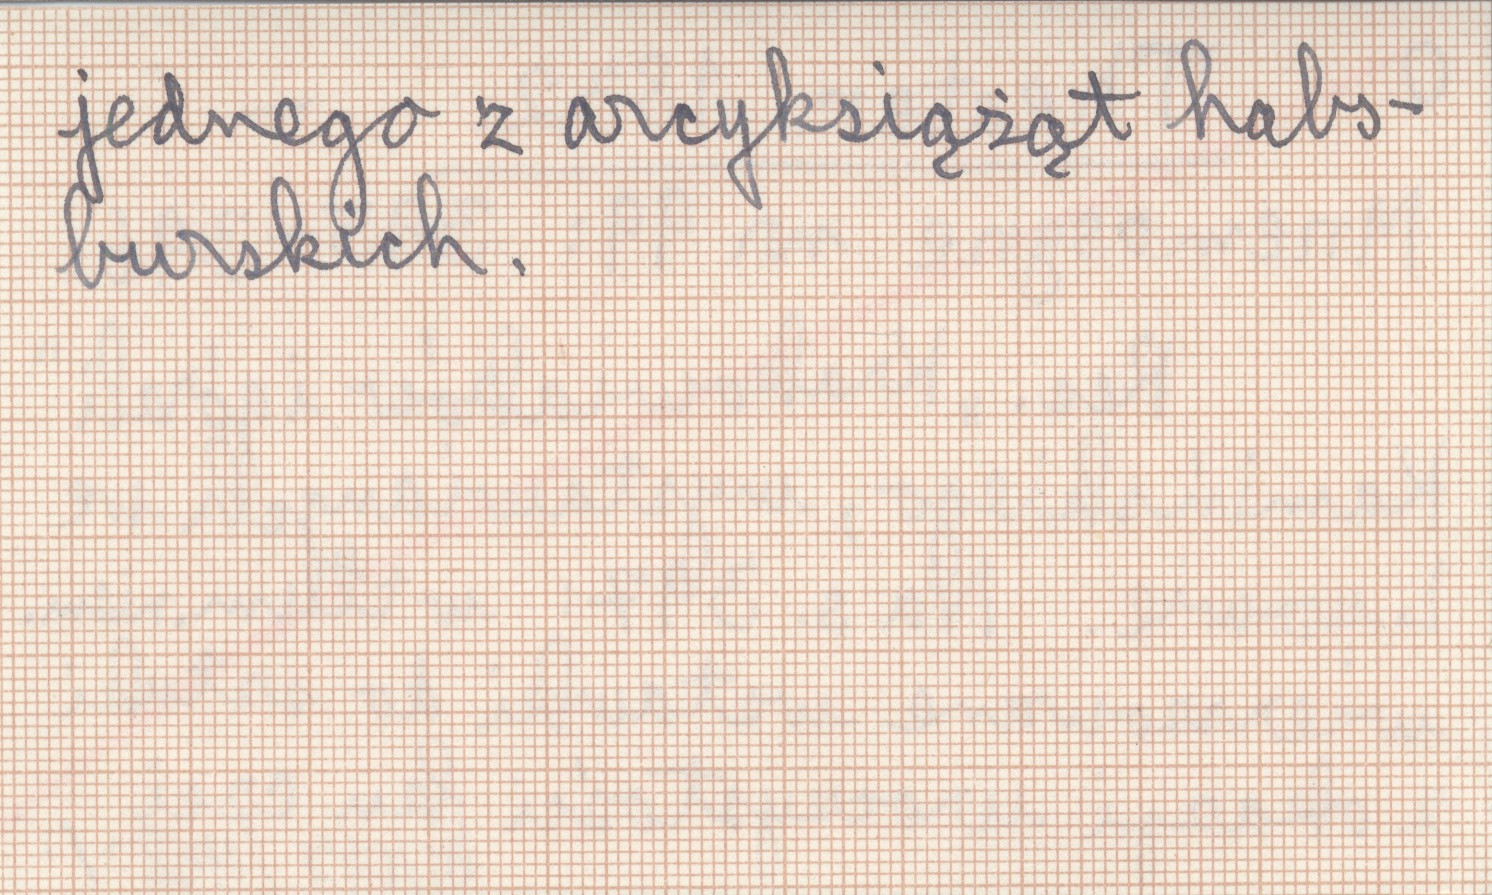 jednego z arcyksiążąt habs-
burskich.